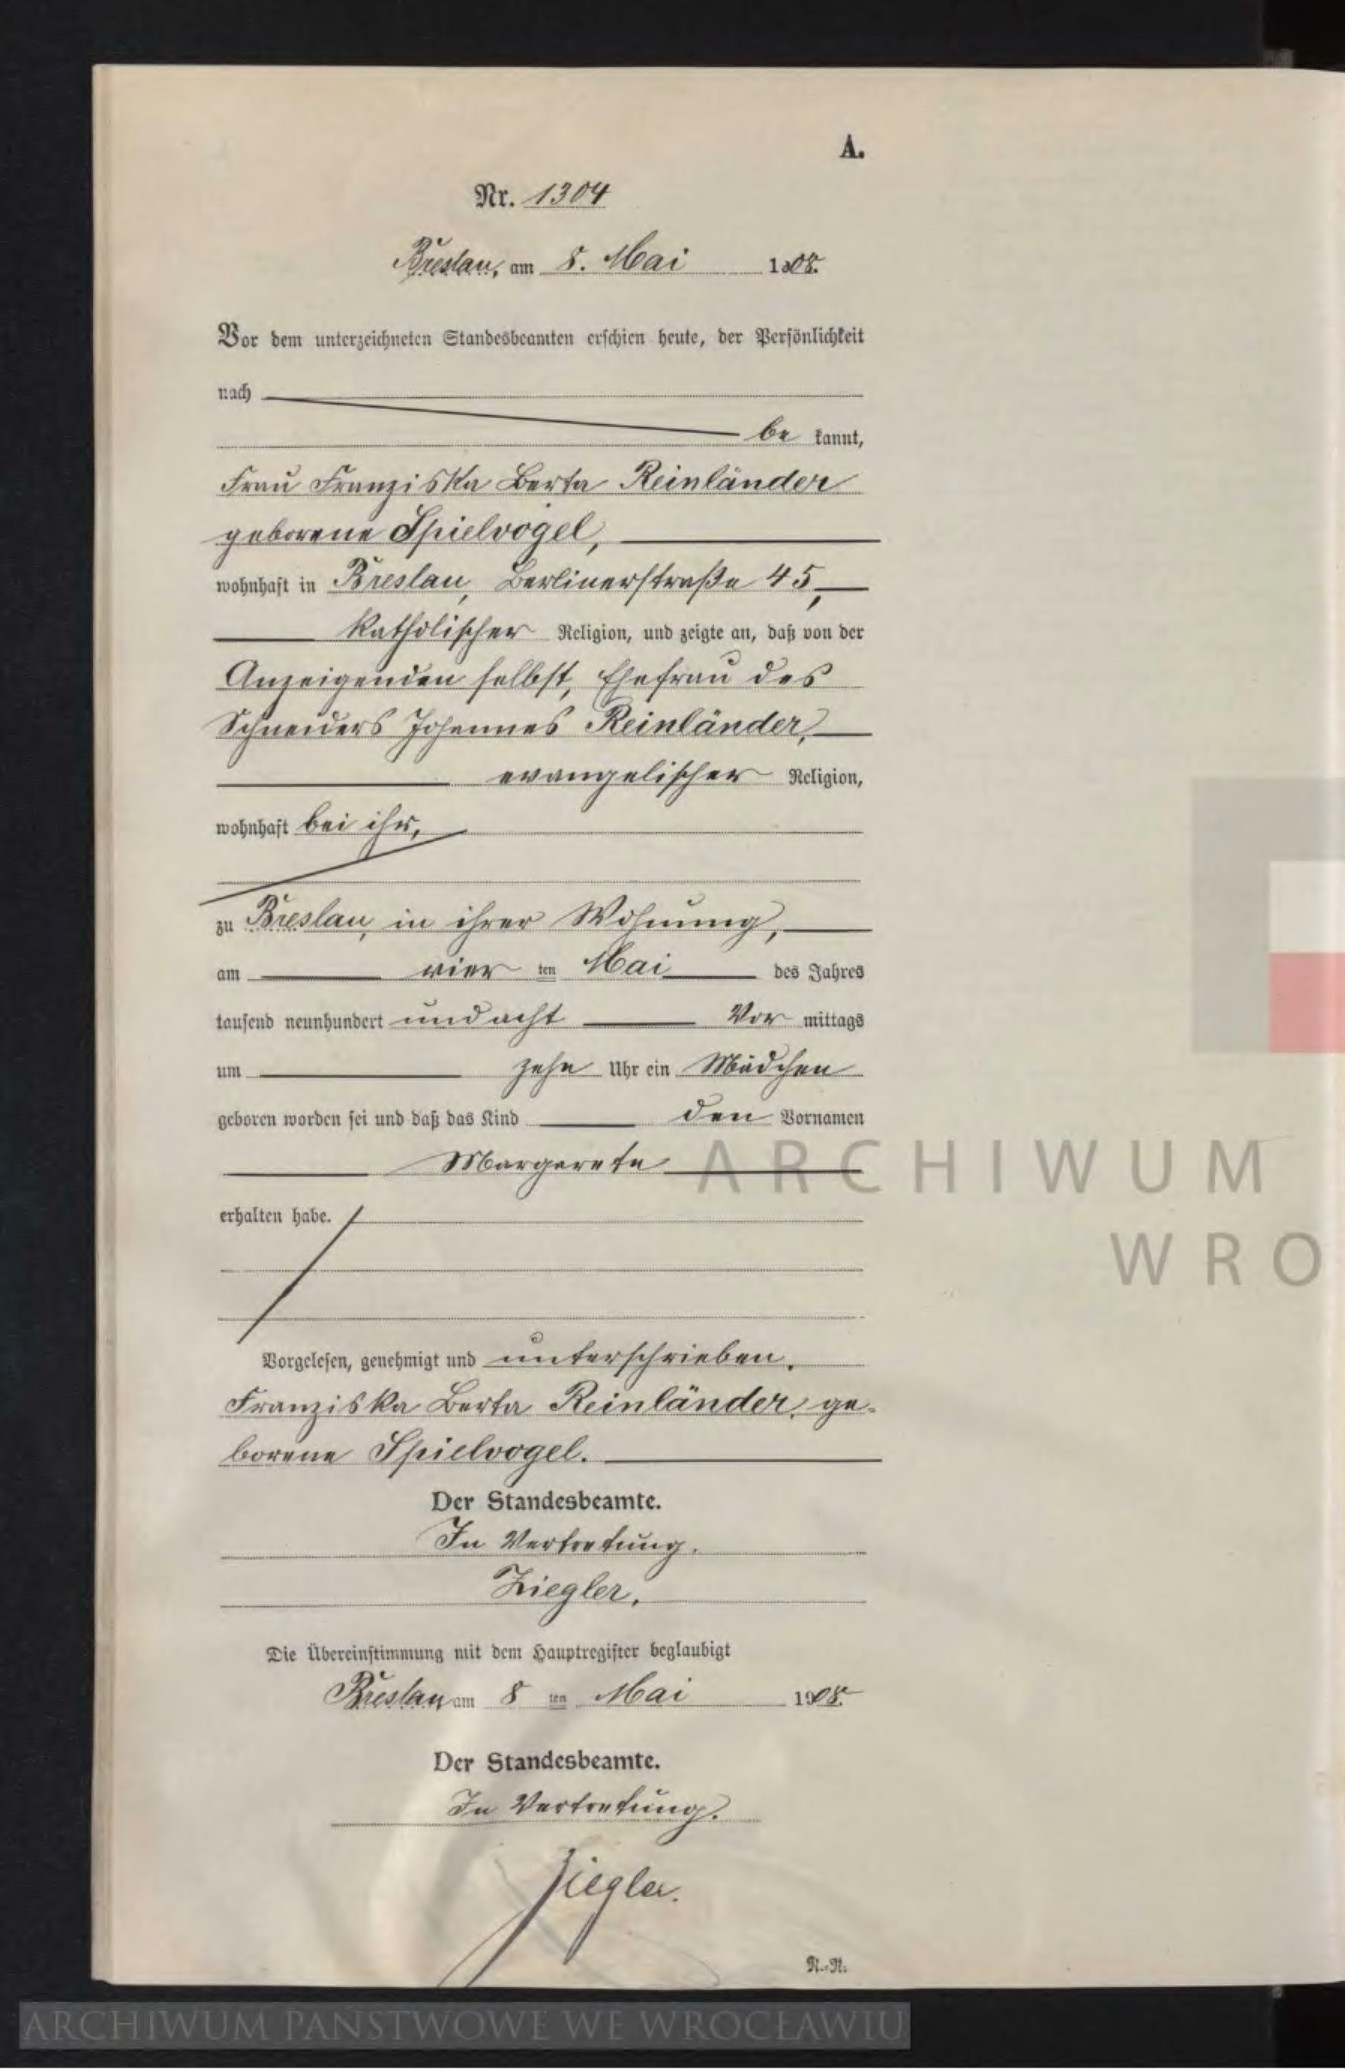 A.
Nr. 1304
Breslau, am 8. Mai 1908.
Vor dem unterzeichneten Standesbeamten erschien heute, der Persönlichkeit
nach
be kannt,
Frau Franziska Berta Reinländer
geborene Spielvogel,
wohnhaft in Breslau, Berlinerstraße 45,
katholischer Religion, und zeigte an, daß von der
Anzeigenden selbst, Ehefrau des
Schneiders Johannes Reinländer,
evangelischer Religion,
wohnhaft bei ihr,
zu Breslau, in ihrer Wohnung,
am vier ten Mai des Jahres
tausend neunhundert und acht Vor mittags
um zehn Uhr ein Mädchen
geboren worden sei und daß das Kind den Vornamen
Margarete
erhalten habe.
Vorgelesen, genehmigt und unterschrieben.
Franziska Berta Reinländer, ge-
borene Spielvogel.
Der Standesbeamte.
In Vertretung.
Ziegler.
Die Übereinstimmung mit dem Hauptregister beglaubigt
Breslau am 8 ten Mai 1908.
Der Standesbeamte.
In Vertretung.
Ziegler.
R.-R.
ARCHIWUM
WRO
ARCHIWUM PAŃSTWOWE WE WROCŁAWIU